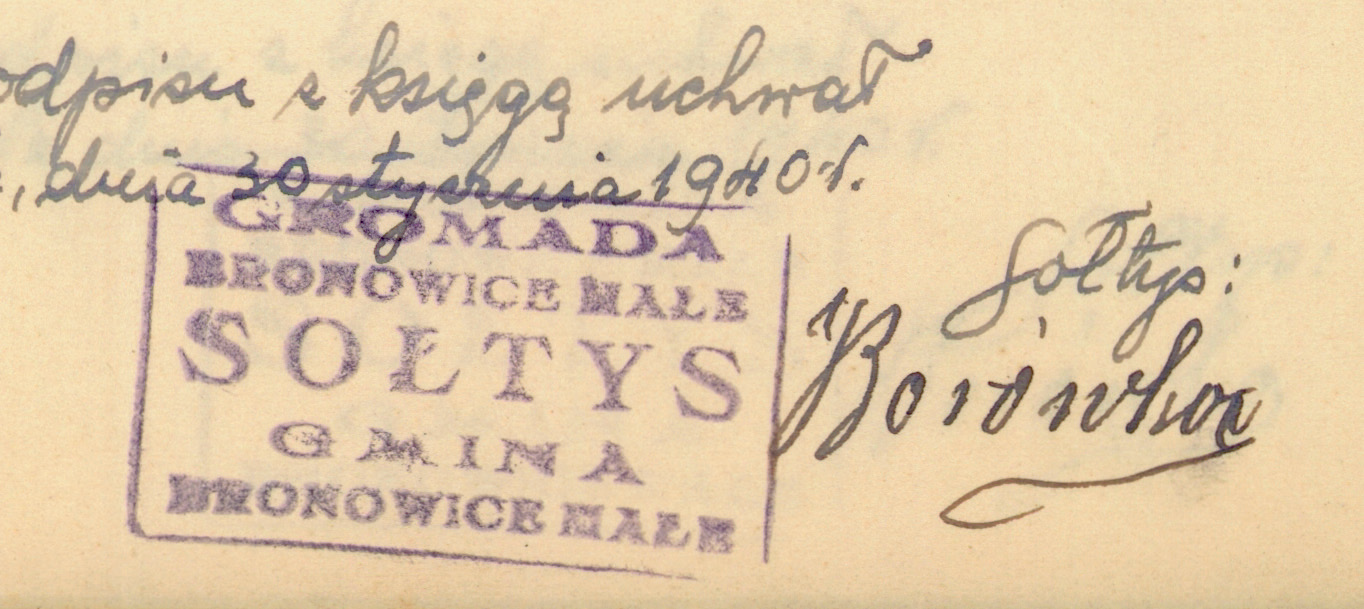 odpisu z księgą uchwał
, dnia 30 stycznia 1940 r.
GROMADA
BRONOWICE MAŁE
SOŁTYS
GMINA
BRONOWICE MAŁE
Sołtys:
Borówka